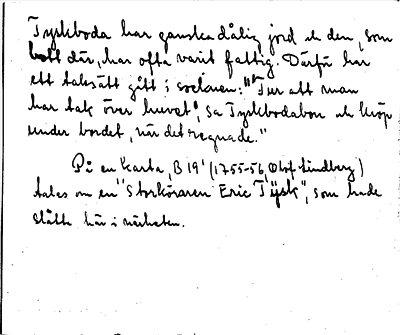 Tyskboda har ganska dålig jord och den, som
bott där, har ofta varit fattig. Därför har
ett talesätt gått i socknen: "Tur att man
har tak över huvet", sa Tyskbodabon och kröp
under bordet, när det regnade."
På en karta, B 19' (1755-56, Olof Lindberg)
talas om en "Storköraren Eric Tÿsk", som hade
slåtta här i närheten.